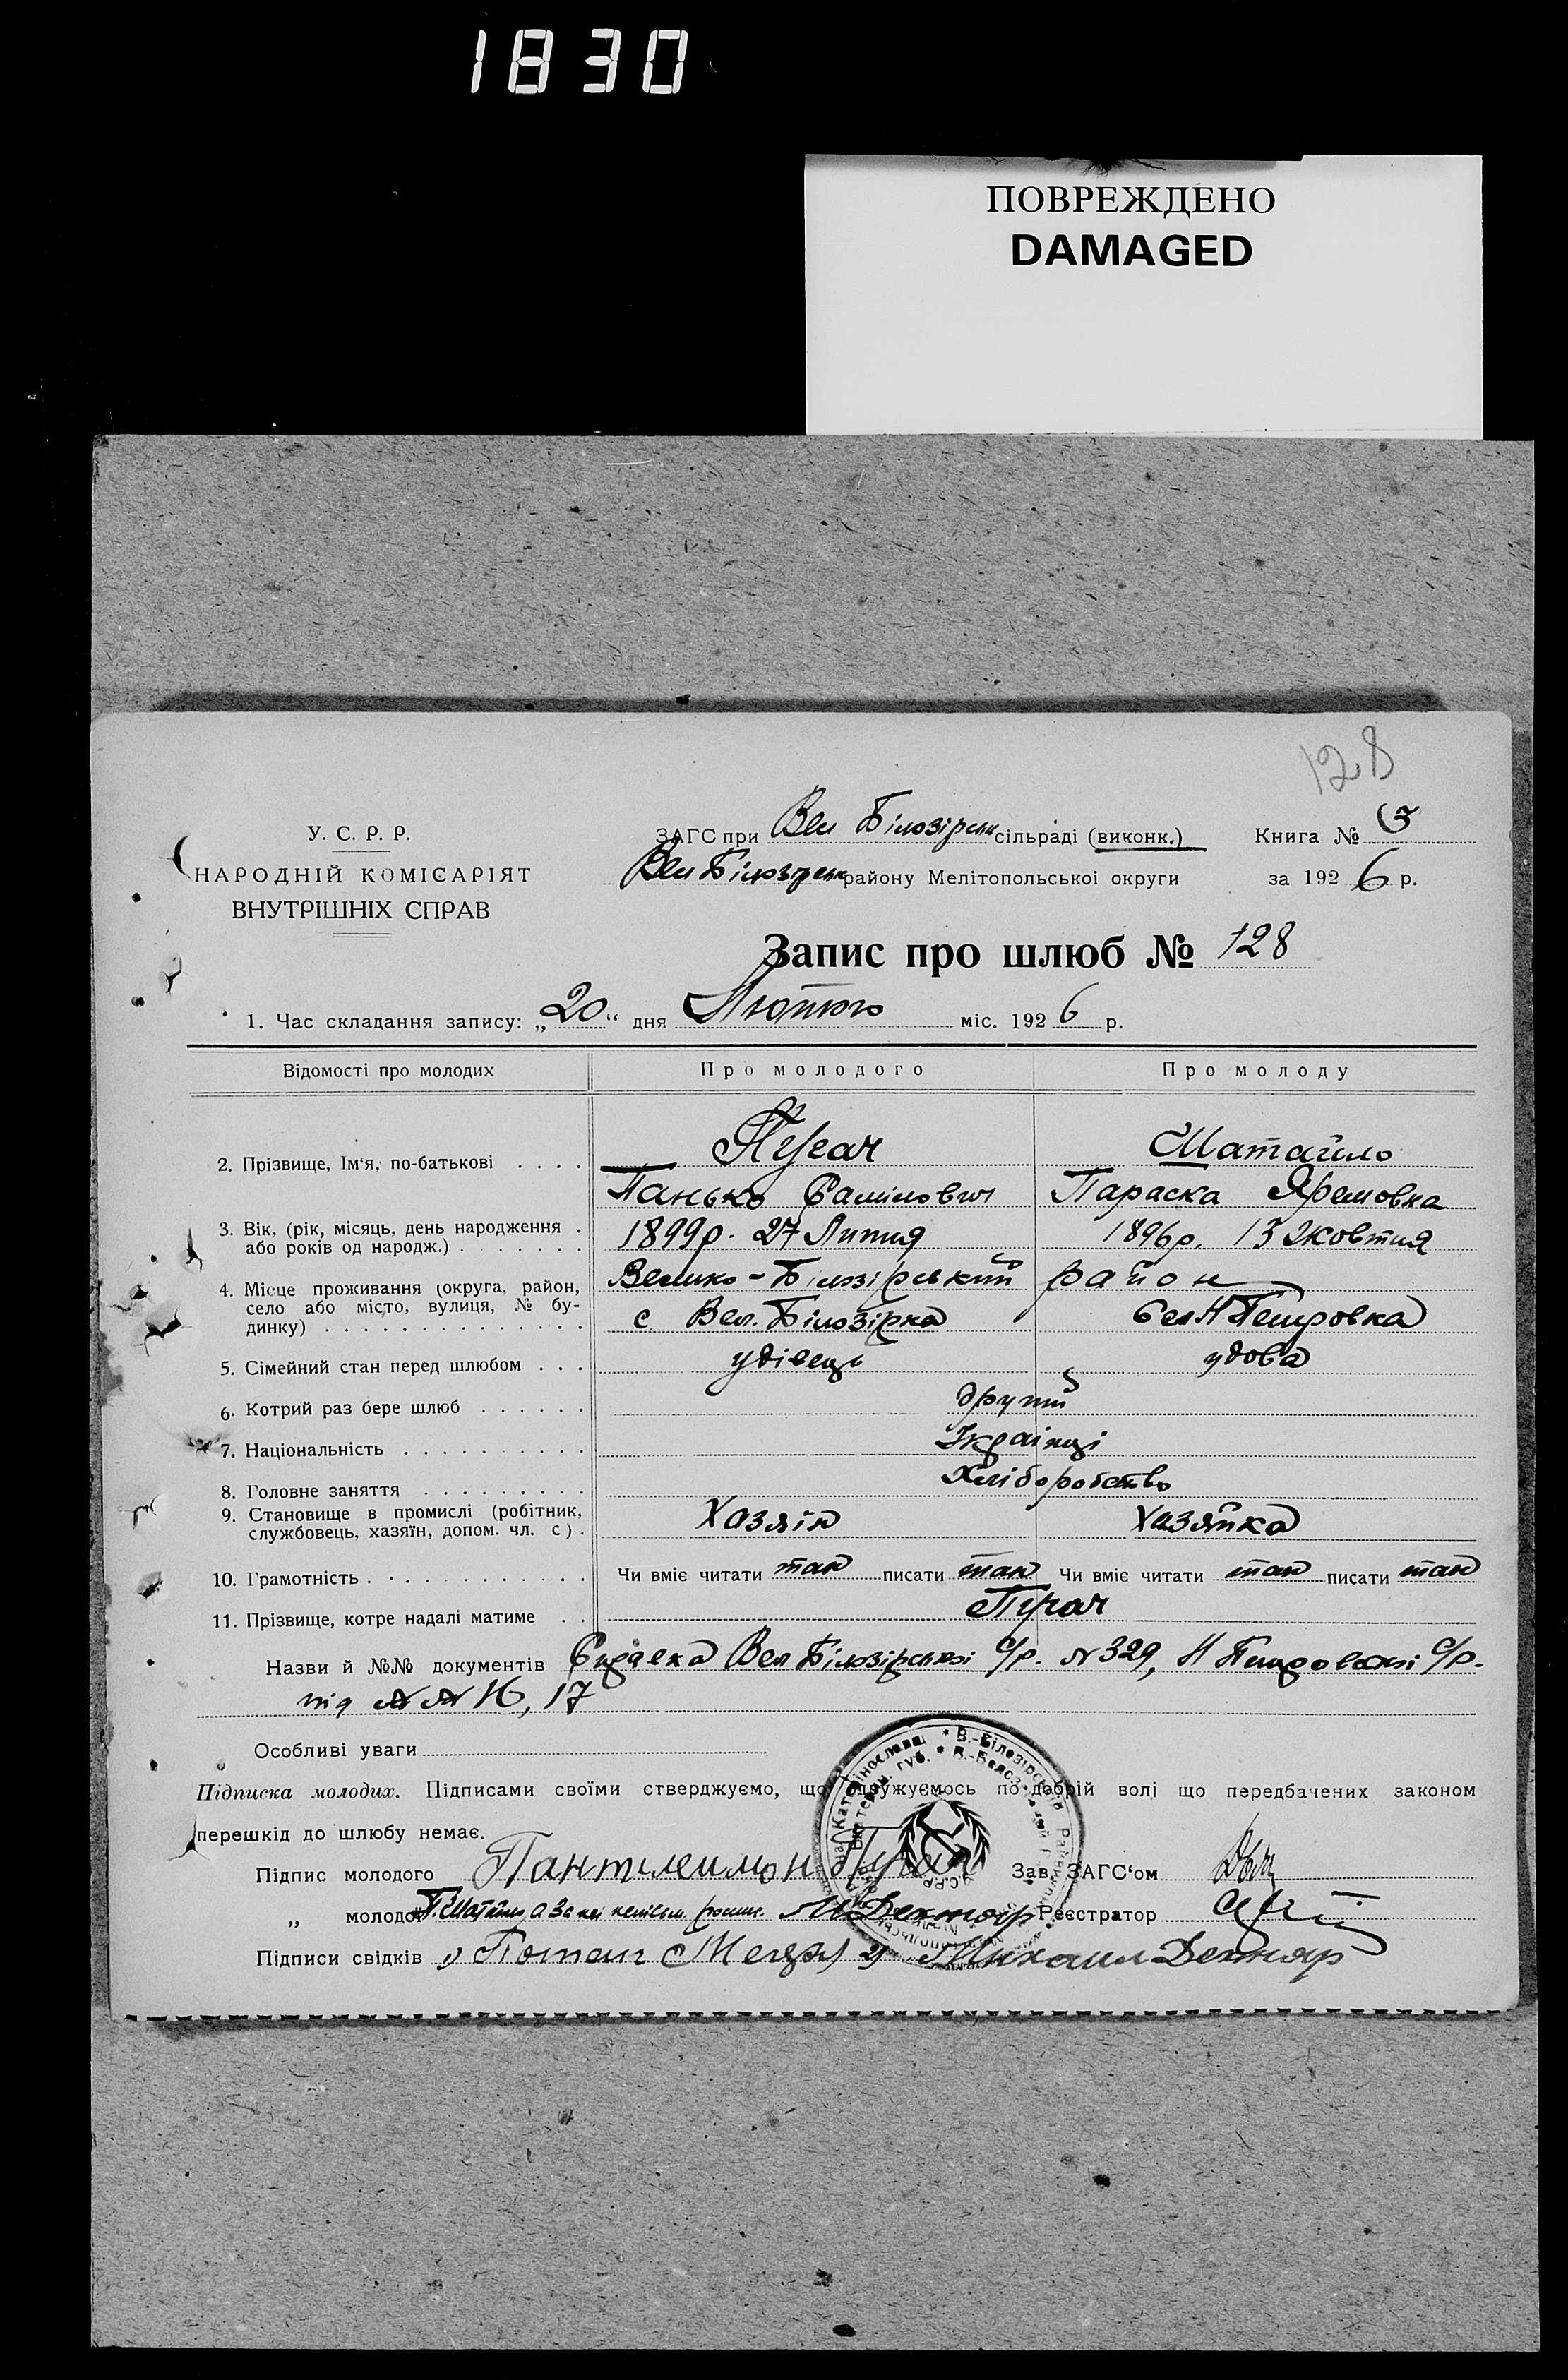 1830
ПОВРЕЖДЕНО
DAMAGED
128
У. С. Р. Р.
НАРОДНІЙ КОМІСАРІЯТ
ВНУТРІШНІХ СПРАВ
ЗАГС при Вел Білозірськ сільраді (виконк.) Книга №
Вел Білозірськ району Мелітопольської округи за 1926 р.
Запис про шлюб № 128
1. Час складання запису: „20“ дня Лютого міс. 1926 р.
Відомості про молодих Про молодого Про молоду
2. Прізвище, Ім‘я, по-батькові Пугач Шатайло
Панько Самілович Параска Яремовна
3. Вік, (рік, місяць, день народження або років од народж.) 1899р. 27 Липня 1896р. 13 Жовтня
4. Місце проживання (округа, район, Велико-Білозірський район
село або місто, вулиця, № будинку) с Вел. Білозірка сел Н Петровка
5. Сімейний стан перед шлюбом удівець удова
6. Котрий раз бере шлюб другий
7. Національність Українці
8. Головне заняття Хліборобство
9. Становище в промислі (робітник, службовець, хазяїн, допом. чл. с). Хазяін Хазяйка
10. Грамотність Чи вміє читати так писати так Чи вміє читати так писати так
11. Прізвище, котре надалі матиме Пугач
Назви й №№ документів Вел Білозірської с/р. № 329, Н Петровської с/р.
під №№ 16, 17
Особливі уваги
Підписка молодих. Підписами своїми стверджуємо, що одружуємось по добрій волі що передбачених законом
перешкід до шлюбу немає.
Підпис молодого Пантилеимон Пугач Зав. ЗАГС‘ом
„ молодої П. Шатайло а за неі М Дехтяр Реєстратор
Підписи свідків 1) Потап 2) Михаил Дехтяр